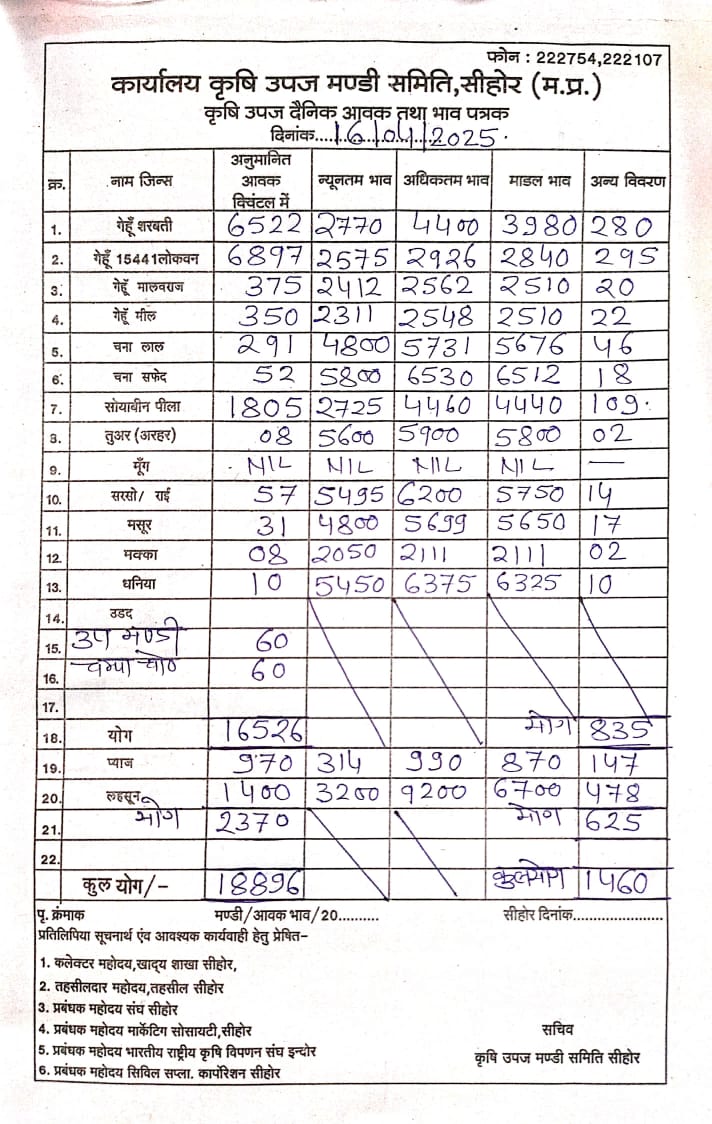 फोन : 222754,222107
कार्यालय कृषि उपज मण्डी समिति,सीहोर (म.प्र.)
कृषि उपज दैनिक आवक तथा भाव पत्रक
दिनांक....16/04/2025.
क्र. नाम जिन्स अनुमानित आवक क्विंटल में न्यूनतम भाव अधिकतम भाव माडल भाव अन्य विवरण
1. गेहूँ शरबती 6522 2770 4400 3980 280
2. गेहूँ 15441लोकवन 6897 2575 2926 2840 295
3. गेहूँ मालवराज 375 2412 2562 2510 20
4. गेहूँ मील 350 2311 2548 2510 22
5. चना लाल 291 4800 5731 5676 46
6. चना सफेद 52 5800 6530 6512 18
7. सोयाबीन पीला 1805 2725 4460 4440 109.
8. तुअर (अरहर) 08 5600 5900 5800 02
9. मूँग NIL NIL NIL NIL —
10. सरसो/ राई 57 5495 6200 5750 14
11. मसूर 31 4800 5699 5650 17
12. मक्का 08 2050 2111 2111 02
13. धनिया 10 5450 6375 6325 10
14. उडद
15. उप मण्डी 60
16. 60
17.
18. योग 16526 योग 835
19. प्याज 970 314 990 870 147
20. लहसून 1400 3200 9200 6700 478
21. योग 2370 योग 625
22.
कुल योग/- 18896 कुलयोग 1460
पृ. क्रंमाक मण्डी/आवक भाव/20.......... सीहोर दिनांक......................
प्रतिलिपिया सूचनार्थ एंव आवश्यक कार्यवाही हेतु प्रेषित–
1. कलेक्टर महोदय,खाद्य शाखा सीहोर,
2. तहसीलदार महोदय,तहसील सीहोर
3. प्रबंधक महोदय संघ सीहोर
4. प्रबंधक महोदय मार्केटिग सोसायटी,सीहोर सचिव
5. प्रबंधक महोदय भारतीय राष्ट्रीय कृषि विपणन संघ इन्दोर कृषि उपज मण्डी समिति सीहोर
6. प्रबंधक महोदय सिविल सप्ला. कार्पोरेशन सीहोर